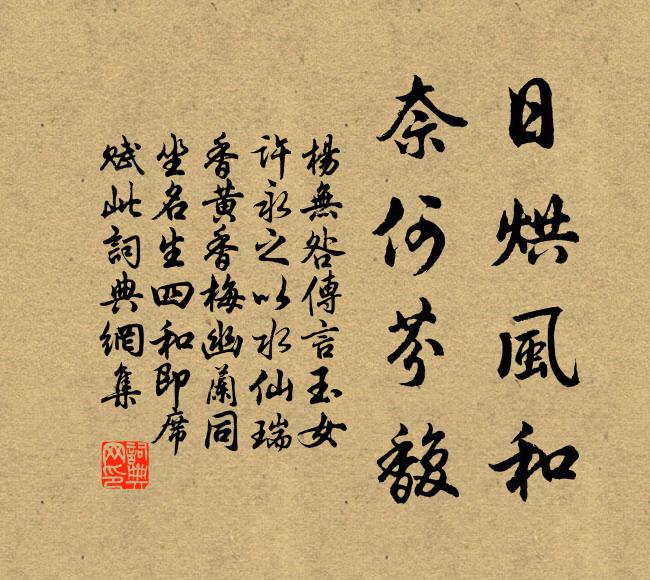 日烘風和
奈何芬馥
楊無咎傳言玉女
許永之以水仙瑞
香黃香梅幽蘭同
坐名生四和即席
賦此詞典網集
詞典網印